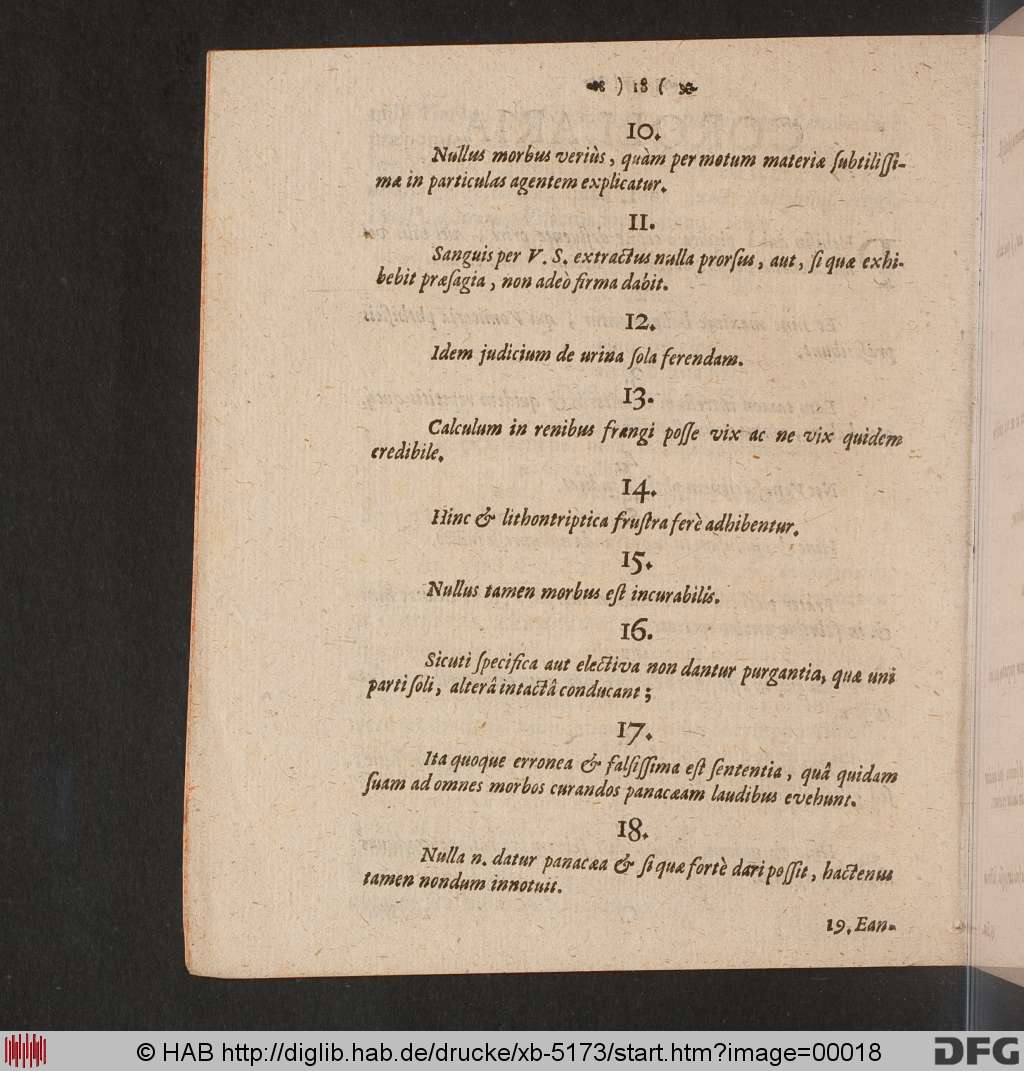 ) 18 (
10.
Nullus morbus veriùs, quàm per motum materiæ ſubtiliſſi-
mæ in particulas agentem explicatur.
11.
Sanguis per V. S. extractus nulla prorſus, aut, ſi quæ exhi-
bebit præſagia, non adeò firma dabit.
12.
Idem judicium de urina ſola ferendam.
13.
Calculum in renibus frangi poſſe vix ac ne vix quidem
credibile.
14.
Hinc & lithontriptica fruſtra ferè adhibentur.
15.
Nullus tamen morbus eſt incurabilis.
16.
Sicuti ſpecifica aut electiva non dantur purgantia, quæ uni
parti ſoli, alterâ intactâ conducant;
17.
Ita quoque erronea & falſiſſima eſt ſententia, quâ quidam
ſuam ad omnes morbos curandos panacæam laudibus evehunt.
18.
Nulla n. datur panacæa & ſi quæ fortè dari poſſit, hactenus
tamen nondum innotuit.
19. Ean-
© HAB http://diglib.hab.de/drucke/xb-5173/start.htm?image=00018
DFG